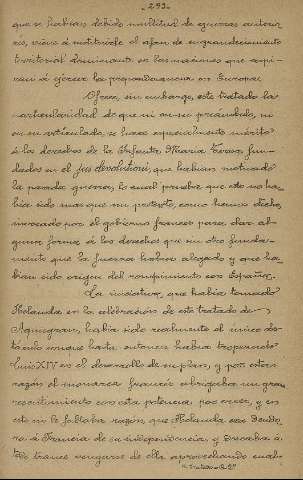 -293-
que se habían debido multitud de guerras anterio-
res, viene á sustituirle el afan de engrandecimiento
territorial dominante en las naciones que aspi-
ran á ejercer la preponderancia en Europa.
Ofrece, sin embargo, este tratado la
particularidad de que ni en su preámbulo, ni
en su articulado, se hace especialmente mérito
á los derechos de la Infanta María Teresa fun-
dados en el jus devolutioni, que habían motivado
la pasada guerra, lo cual prueba que esto no ha-
bía sido mas que un pretexto, como hemos dicho,
invocado por el gobierno francés para dar al-
guna forma á los derechos que sin otro funda-
mento que la fuerza había alegado y que ha-
bían sido origen del rompimiento con España.
La iniciativa, que había tomado
Holanda en la celebración de este tratado de
Aquisgran, había sido realmente el único obs-
táculo con que hasta entonces había tropezado
Luis XIV en el desarrollo de su plan, y por esta
razón el monarca francés abrigaba un gran
resentimiento con esta potencia, por creer, y en
esto no le faltaba razón, que Holanda era deudo-
ra á Francia de su independencia, y deseaba á
todo trance vengarse de ella aprovechando cual-